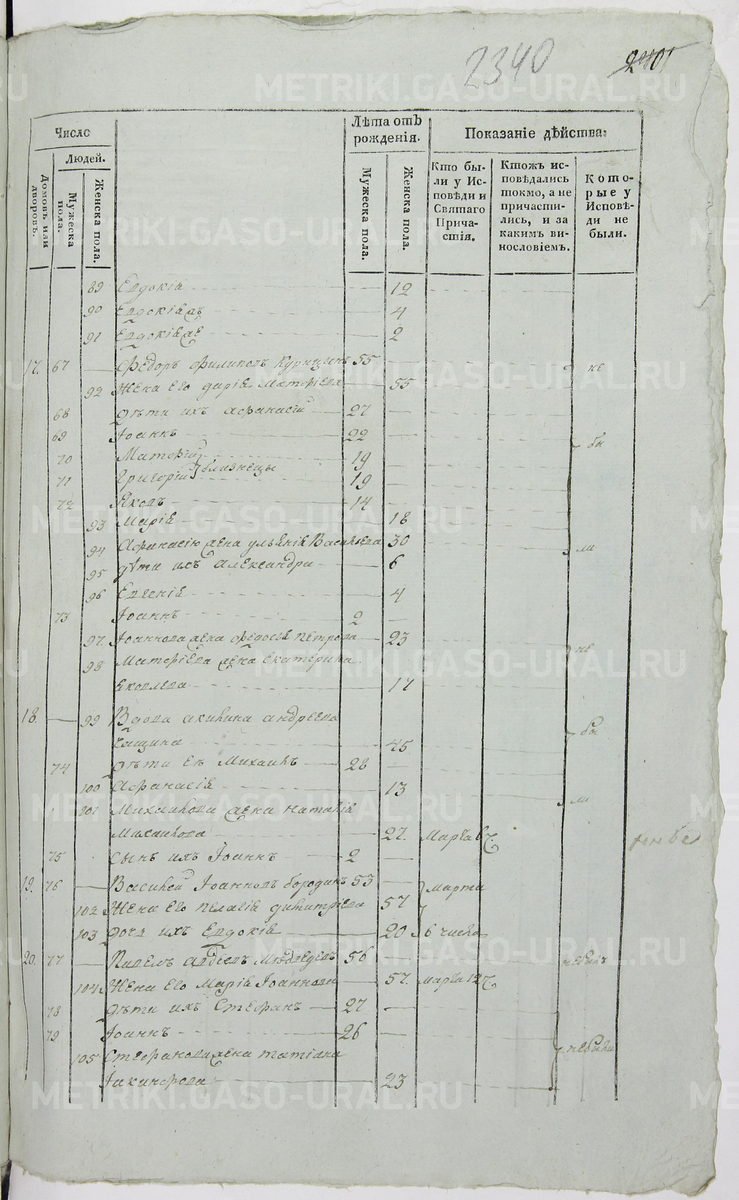 2340
Число
Лѣта отъ рожденія.
Показаніе дѣйства:
Людей.
Домовъ или дворовъ.
Мужеска пола.
Женска пола.
Мужеска пола.
Женска пола.
Кто были у Исповѣди и Святаго Причастія.
Ктожъ исповѣдались токмо, а не причастились, и за какимъ винословіемъ.
Которые у Исповѣди не были.
89 Евдокіа 12
90 Евдокіа 4
91 Евдокіа 2
17. 67 Ѳедоръ Филиповъ 55 не
92 Жена его Дарія Матфіева 55
68 Дѣти ихъ Афанасій 27
69 Іоаннъ 22 бы
70 Матфій 19
71 Григорій близнецы 19
72 Яковъ 14
93 Марія 18
94 Афанасію жена Ульянія Васильева 30 ли
95 Дѣти ихъ Александра 6
96 Евгенія 4
73 Іоаннъ 2
97 Іоаннова жена Федосія Петрова 23 не
98 Матфіева жена Екатерина
Яковлева 17
18. 99 Вдова Акилина Андреева бы
45
74 Дѣти ея Михаилъ 28
100 Афанасія 13
101 Михаилова жена Наталія ли
Михайлова 27. Марта 6
75 Сынъ ихъ Іоаннъ 2
19. 76 Василей Іоанновъ Бородинъ 53 Марта
102 Жена его Пелагія Димитріева 57
103 Дочь ихъ Евдокія 20 6 числа
20. 77 Павелъ Авдіевъ Медведевъ 56
104 Жена его Марія Іоаннова 57. Марта 12
78 Дѣти ихъ Стефанъ 27
79 Іоаннъ 26
105 Стефанова жена Татіана небыли
Никифорова 23
METRIKI.GASO-URAL.RU